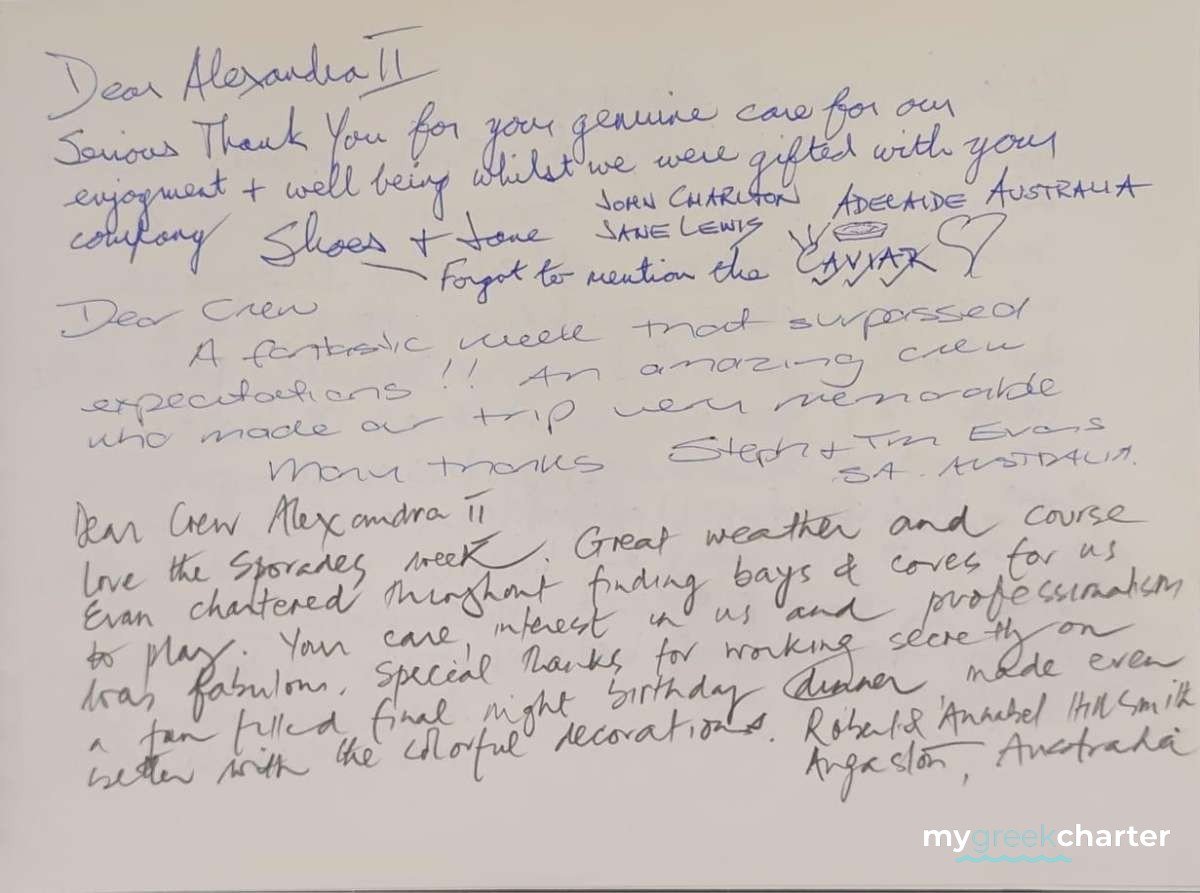 Dear Alexandra II
Serious Thank You for your genuine care for our
enjoyment + well being whilst we were gifted with your
company Shoes + Jane JOHN CHARLTON ADELAIDE AUSTRALIA
JANE LEWIS
Forgot to mention the CAVIAR
Dear Crew
A fantastic week that surpassed
expectations !! An amazing crew
who made our trip very memorable
Many thanks Steph + Tim Evans
SA. AUSTRALIA.
Dear Crew Alexandra II
Love the Sporades week. Great weather and course
Evan chartered throughout finding bays & coves for us
to play. Your care, interest in us and professionalism
was fabulous. Special thanks for working secretly on
a fun filled final night birthday dinner made even
better with the colorful decorations. Robert & Annabel Hill Smith
Angaston, Australia
mygreekcharter